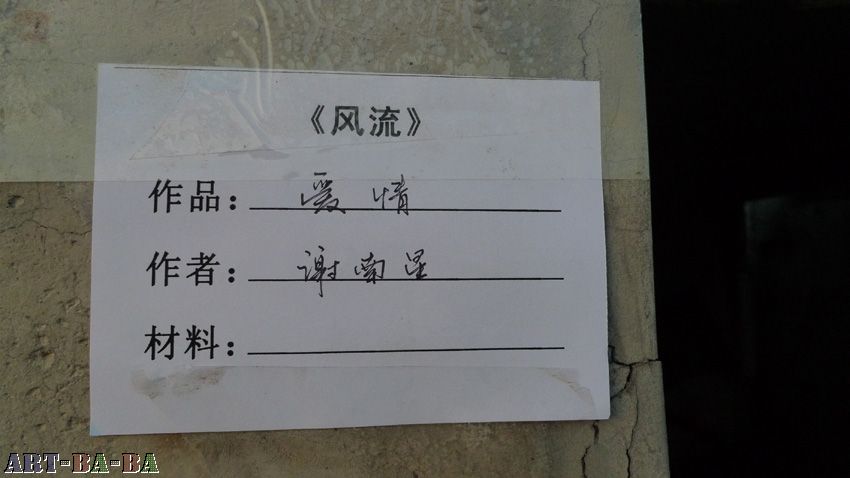 《风流》
作品：爱情
作者：谢南星
材料：
ART-BA-BA